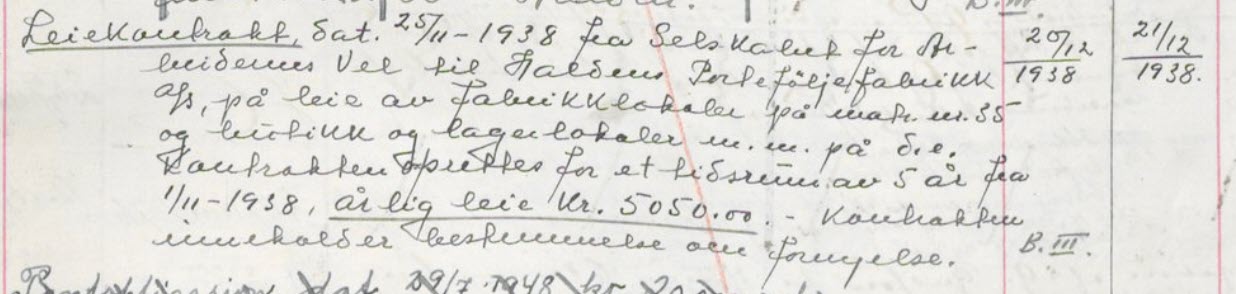 B. III.
Leiekontrakt, dat. 25/11-1938 fra Selskabet for Ar- 20/12 1938 21/12 1938.
beidernes Vel til Haldens Porteföljefabrikk
A/S, på leie av fabrikklokaler på matr. nr. 35
og butikk og lagerlokaler m.m. på d.e.
Kontrakten oprettes for et tidsrum av 5 år fra
1/11-1938, årlig leie kr. 5050.00. - Kontrakten
inneholder bestemmelse om fornyelse. B. III.
dat. 29/7.1948 kr